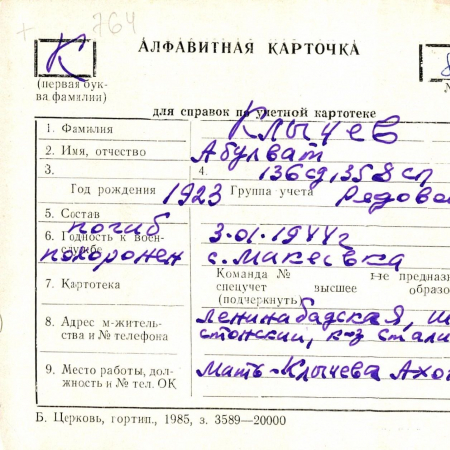 764
К
АЛФАВИТНАЯ КАРТОЧКА
(первая бук-
ва фамилии)
для справок по учетной картотеке
1. Фамилия Клычев
2. Имя, отчество Абулват
3. 4. 136сд, 358 сп
Год рождения 1923 Группа учета рядово
5. Состав
погиб
6. Годность к воен-
службе 3.01.1944г
похоронен с. Макеевка
Команда № не предназн
7. Картотека спецучет высшее образо
(подчеркнуть)
8. Адрес м-житель-
ства и № телефона
Ленинабадская,
к-з стали
9. Место работы, дол-
жность и № тел. ОК
Мать-Клычева
Б. Церковь, гортип., 1985, з. 3589—20000